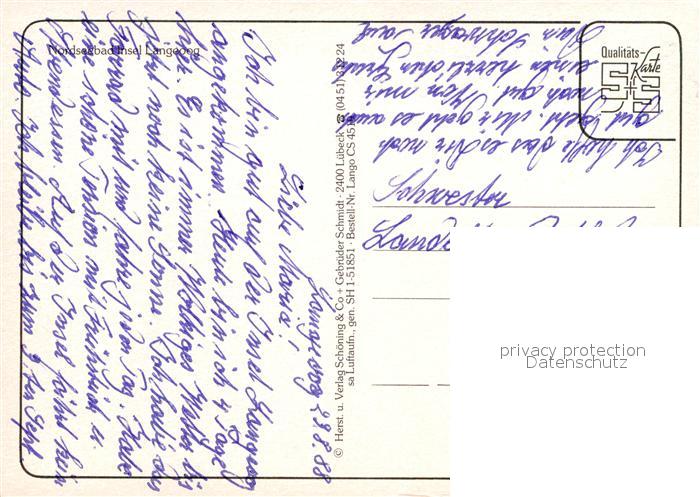 Nordseebad Insel Langeoog
Qualitäts-
Karte
S+S
Langeoog 29.8.88
Liebe Maria,
Ich bin gut auf der Insel Langeoog
angekommen. Heute bin ich 4 Tage
hier. Es ist immer Wolkiges Wetter bis
jetzt noch keine Sonne. Ich habe ein
Fahrrad mit und fahre jeden Tag. Habe
eine schöne Pension mit Frühstück u.
Abendessen. Auf der Insel fährt kein
Auto. Ich bleibe bis zum 9 ten Sept.
Ich hoffe das es Dir noch
gut geht. Mir geht es auch
noch gut. Von mir
einen herzlichen Gruß
Dein Schwager
© Herst. u. Verlag Schöning & Co + Gebrüder Schmidt · 2400 Lübeck · ☎ (0451) 31 12 24
sa Luftaufn., gen. SH 1-51851 · Bestell-Nr. Lango CS 45
privacy protection
Datenschutz